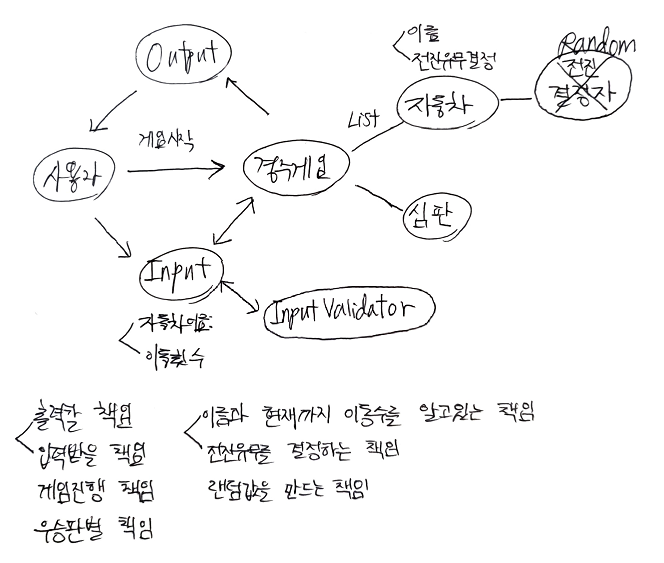 Output
사용자
게임시작
경주게임
List
이름
전진유무결정
자동차
Random
전진
결정자
심판
Input
자동차이름
이동횟수
Input Validator
출력할 책임
입력받을 책임
게임진행 책임
우승판별 책임
이름과 현재까지 이동수를 알고있는 책임
전진유무를 결정하는 책임
랜덤값을 만드는 책임